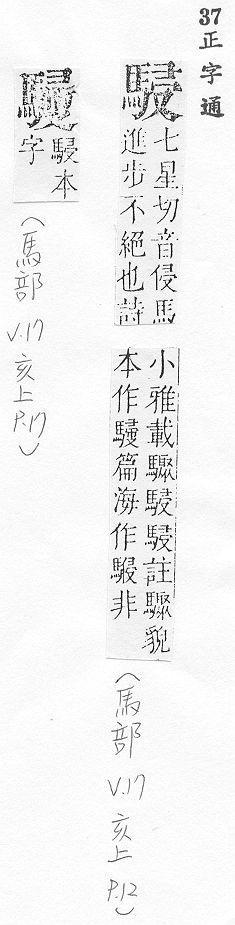 37正字通
駸
七星切音侵馬
進步不絕也詩
小雅載驟駸駸註驟貌
本作篇海作非
(馬部 V.17 亥上 P.12)
駸本
字
(馬部 V.17 亥上 P.17)